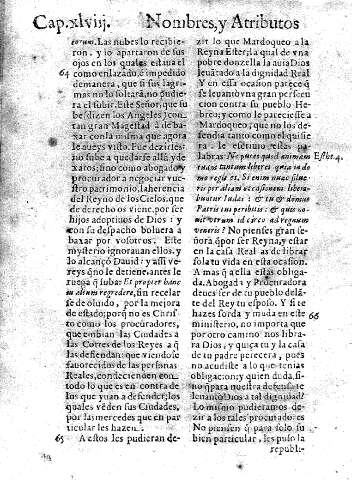 Cap.xlviij. Nombres, y Atributos
eorum. Las nubes lo recibie-
ron, y lo apartaron de sus
ojos en los quales estaua el
64 como enlazado, è impedido
demanera, que si sus lagri-
mas no lo soltarã, no pudie
ra el subir. Este Señor, que su
be dizen los Angeles
tan gran Magestad à de ba-
xar con la misma que agora
le aueys visto. Fue dezirles:
no sube a quedarse allà, de
xaros; sino como abogado, y
procurador a negociar vue-
stro patrimonio, la herencia
del Reyno de los Cielos, que
de derecho os viene, por ser
hijos adoptiuos de Dios: y
con su despacho boluera a
baxar por vosotros. Este
mysterio ignorauan ellos, y
lo alcançò Dauid: y assi ve-
reys q̃ no le detiene, antes le
ruega q̃ suba: Et propter hanc
in altum regredere, sin recelar
se de oluido, por la mejora
de estado; porq̃ no es Chris-
to como los procuradores,
que embian las Ciudades a
las Cortes de los Reyes a q̃
las defiendan: que viendose
fauorecidos de las personas
Reales, condecienden con
todo lo que es en contra de
los que yuan a defender; los
quales vẽden sus Ciudades,
por las mercedes que en par
ticular les hazen.
65 A estos les pudieran de-
zir lo que Mardoqueo a la
Reyna Ester; la qual de vna
pobre donzella la auia Dios
leuãtado a la dignidad Real
Y en esta ocasion pareceq̃
se leuantò vna gran persecu
cion contra su pueblo He-
breo; y como le pareciesse a
Mardoqueo; que no los de-
fendia tanto como el quisie
ra. le escriuio estas pa-
labras Ne putes quod animam Esth.4.
tuam tantum liberes quia in do
mo regis es. Si enim nunc silue-
ris per aliam occasionem libera-
buntur Iudæi: & tu & domus
Patris tui peribitis: & quis no-
uit vtrum id circo ad regnum
veneris? No pienses gran se-
ñora q̃ por ser Reyna, y estar
en la casa Real as de librar
sola tu vida en esta ocasion.
A mas q̃ a ella estàs obliga-
da. Abogada y Procuradora
deues ser de tu pueblo delã-
te del Rey tu esposo. Y si te
hazes sorda y muda en este 66
ministerio, no importa que
por otro camino nos libra-
ra Dios, y quiça tu y la casa de
tu padre perecerà, pues
no acudiste a lo que tenias
obligacion; y quien duda, si-
no q̃ para nuestra defensa te
leuantò Dios a tal dignidad?
Lo mismo pudieramos de-
zir a los tales procuradores
No piensen q̃ para solo su
bien particular, les puso la
republi-